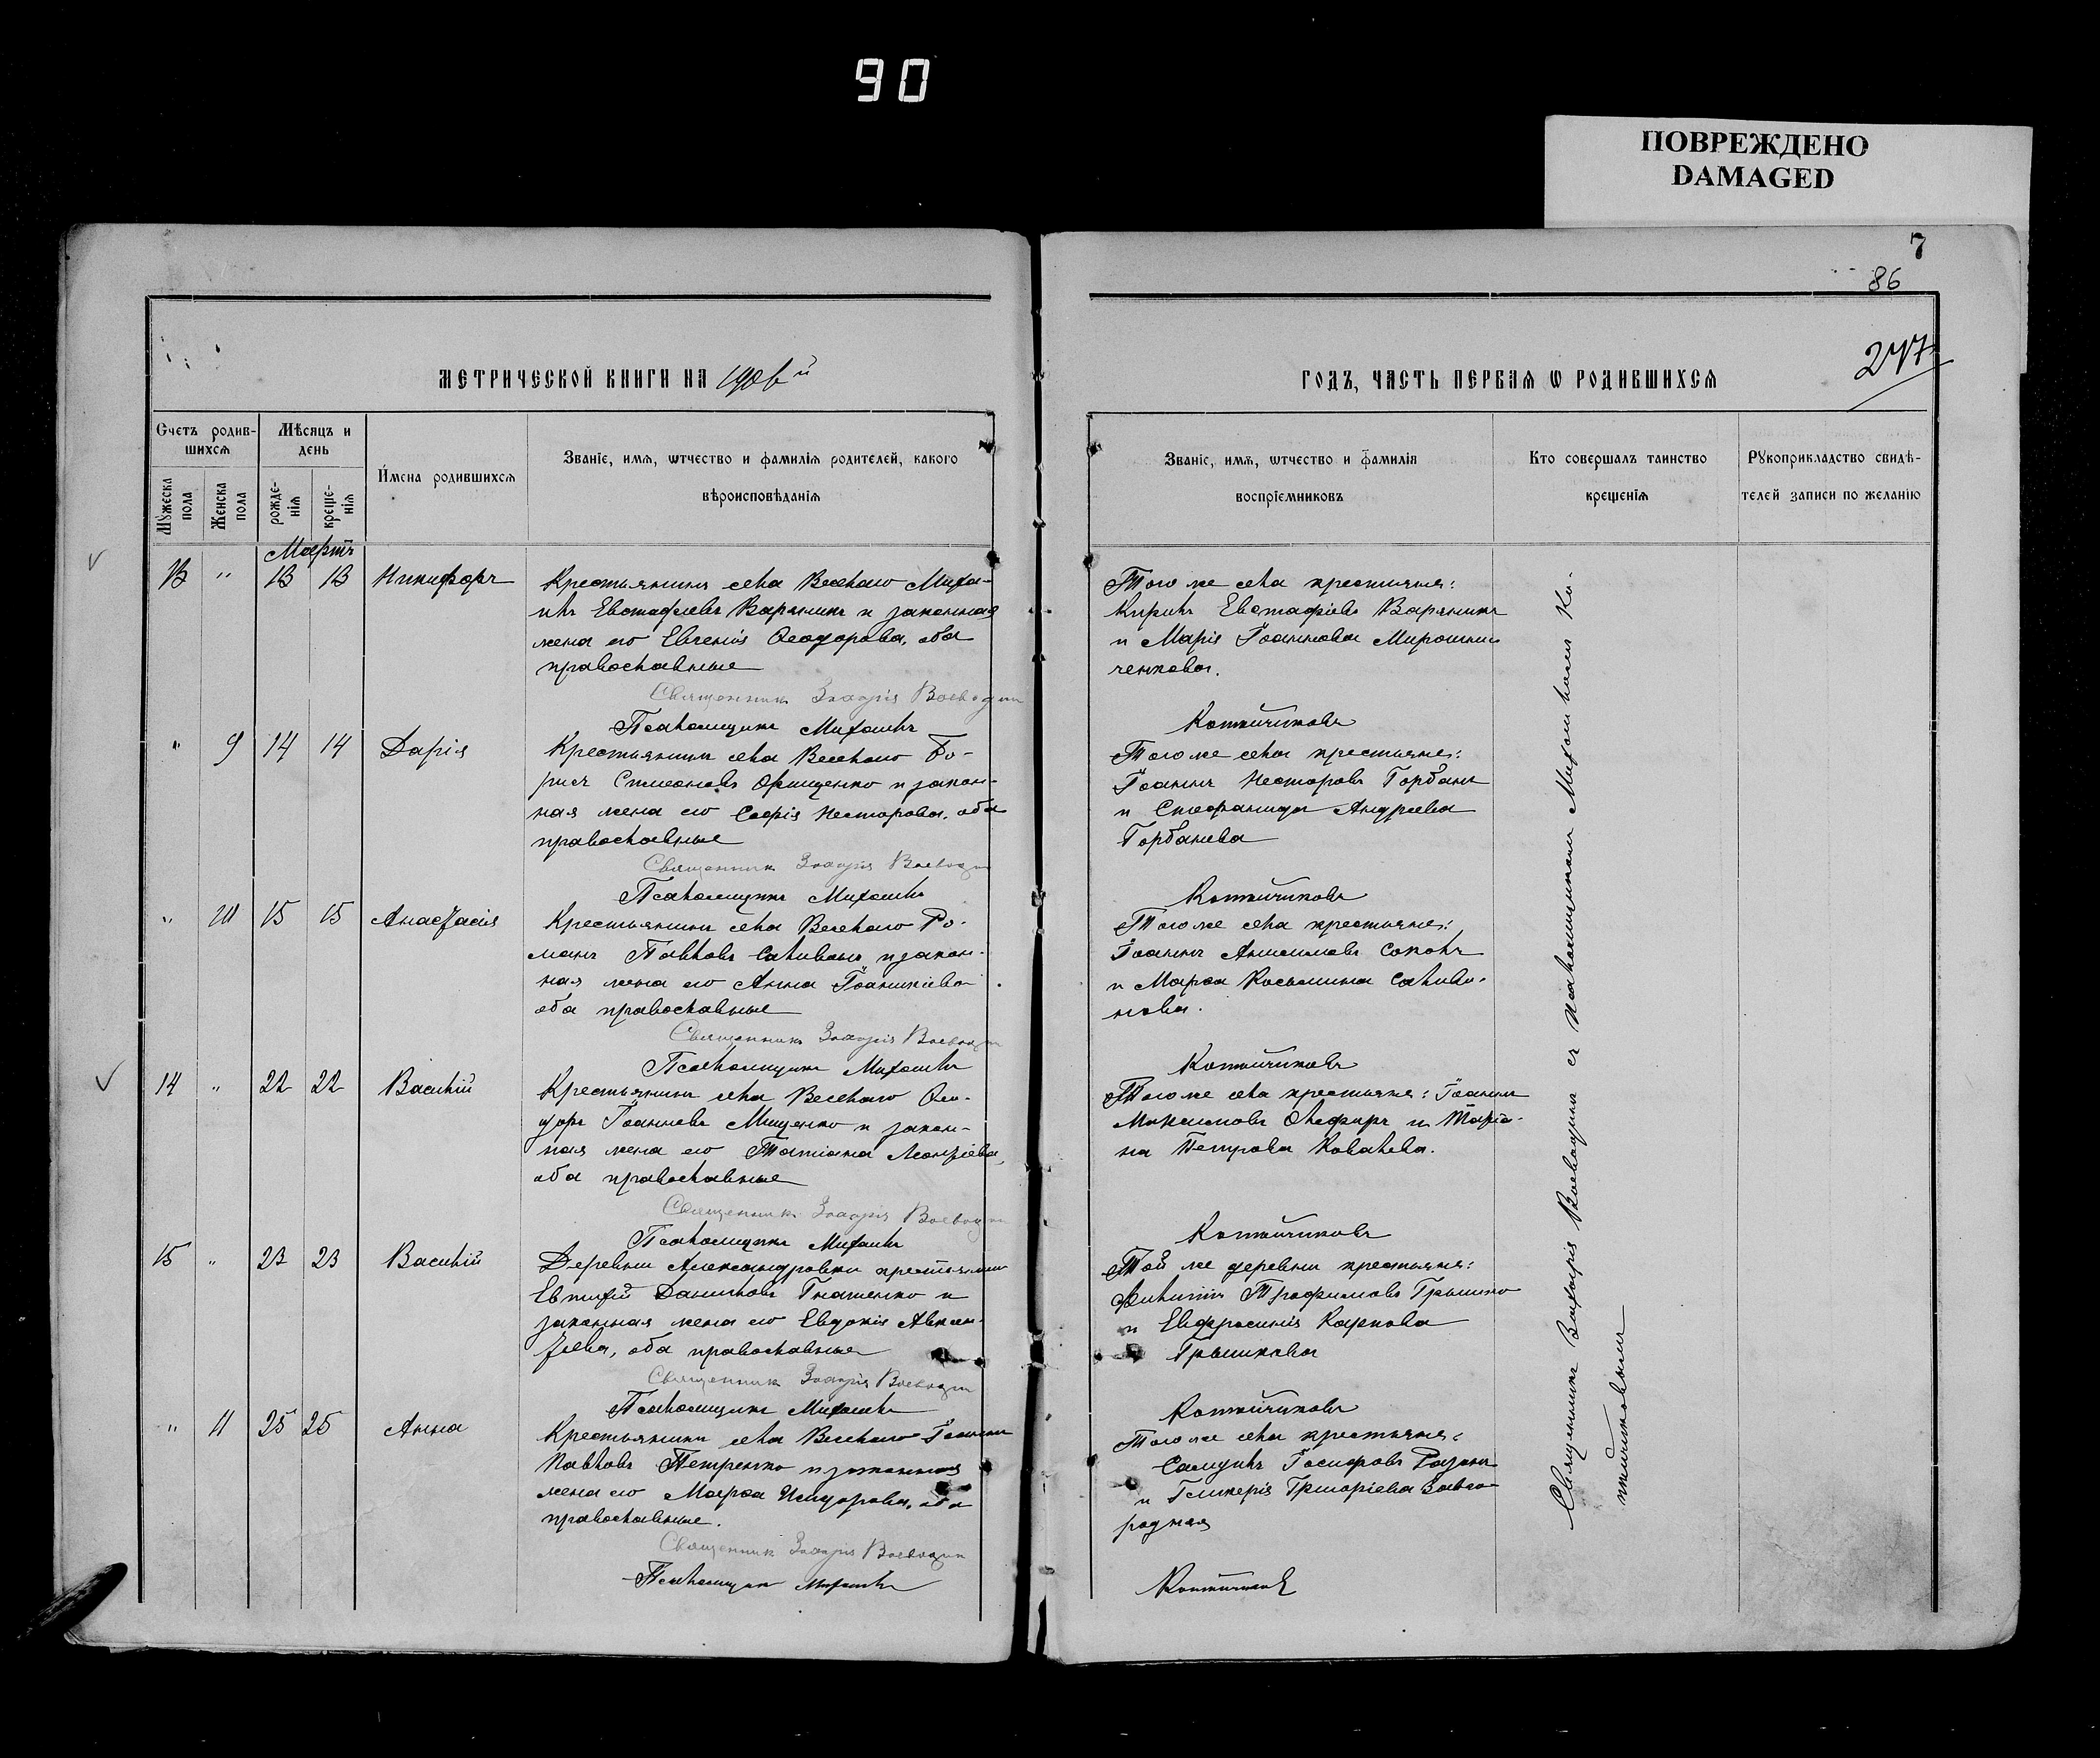 90
ПОВРЕЖДЕНО
DAMAGED
7
86
247
МЕТРИЧЕСКОЙ КНИГИ НА 1906й
ГОДЪ, ЧАСТЬ ПЕРВАЯ Ѡ РОДИВШИХСЯ
Счетъ родив-
шихся
Мѣсяцъ и
день
Имена родившихся
Званїе, имя, ѿтчество и фамилїя родителей, какого
вѣроисповѣданїя
Мужеска пола
Женска пола
рожде-
нїя
креще-
нїя
Званїе, имя, ѿтчество и фамилїя
воспрїемниковъ
Кто совершалъ таинство
крещенїя
Рукоприкладство свидѣ-
телей записи по желанїю
Мартъ
13 " 13 13 Никифоръ
Крестьянинъ села Веселаго Миха-
илъ Евстафіевъ Вараникъ и законная
жена его Евгенія Ѳеодорова, оба
православные
Священникъ Захарія Воеводин
Псаломщикъ Михаилъ
Того же села крестьяне:
Кирилъ Евстафіевъ Вараникъ
и Марія Іоаннова Мирошни-
ченкова.
Котлюликовъ
" 9 14 14 Дарія
Крестьянинъ села Веселаго Бо-
рисъ Симеоновъ Онищенко и закон-
ная жена его Софія Несторова, оба
православные
Священникъ Захарія Воеводин
Псаломщикъ Михаилъ
Того же села крестьяне:
Іоаннъ Несторовъ Горбань
и Стефанида Андреева
Горбанева
" 10 15 15 Анастасія
Крестьянинъ села Веселаго Ро-
манъ Павловъ Саливонъ и закон-
ная жена его Анна Іоанникіева
оба православные
Священникъ Захарія Воеводин
Псаломщикъ Михаилъ
Того же села крестьяне:
Іоаннъ Анисимовъ Соколъ
и Марѳа Косьмина Саливо-
нова.
14 " 22 22 Василій
Крестьянинъ села Веселаго Ѳео-
доръ Іоанновъ Мищенко и закон-
ная жена его Татіана Леонтіева,
оба православные
Священникъ Захарія Воеводин
Псаломщикъ Михаилъ
Того же села крестьяне: Іоаннъ
Максимовъ Олефиръ и Таті-
на Петрова Ковалева.
15 " 23 23 Василій
Деревни Александровки крестьянинъ
Евтихій Даниловъ Гнатенко и
законная жена его Евдокія Авксен-
тіева, оба православные
Священникъ Захарія Воеводин
Псаломщикъ Михаилъ
Той же деревни крестьяне:
Филиппъ Трофимовъ Грышко
и Евфросинія Карпова
Грышкова
" 11 25 25 Анна
Крестьянинъ села Веселаго Іоаннъ
Павловъ Петренко и законная
жена его Марѳа Исидорова, оба
православные.
Священникъ Захарія Воеводин
Псаломщикъ Михаилъ
Того же села крестьяне:
Самуилъ Іосифовъ
и Гликерія Григоріева Завго-
родняя
Священникъ Захарія Воеводинъ съ псаломщикомъ Михаиломъ